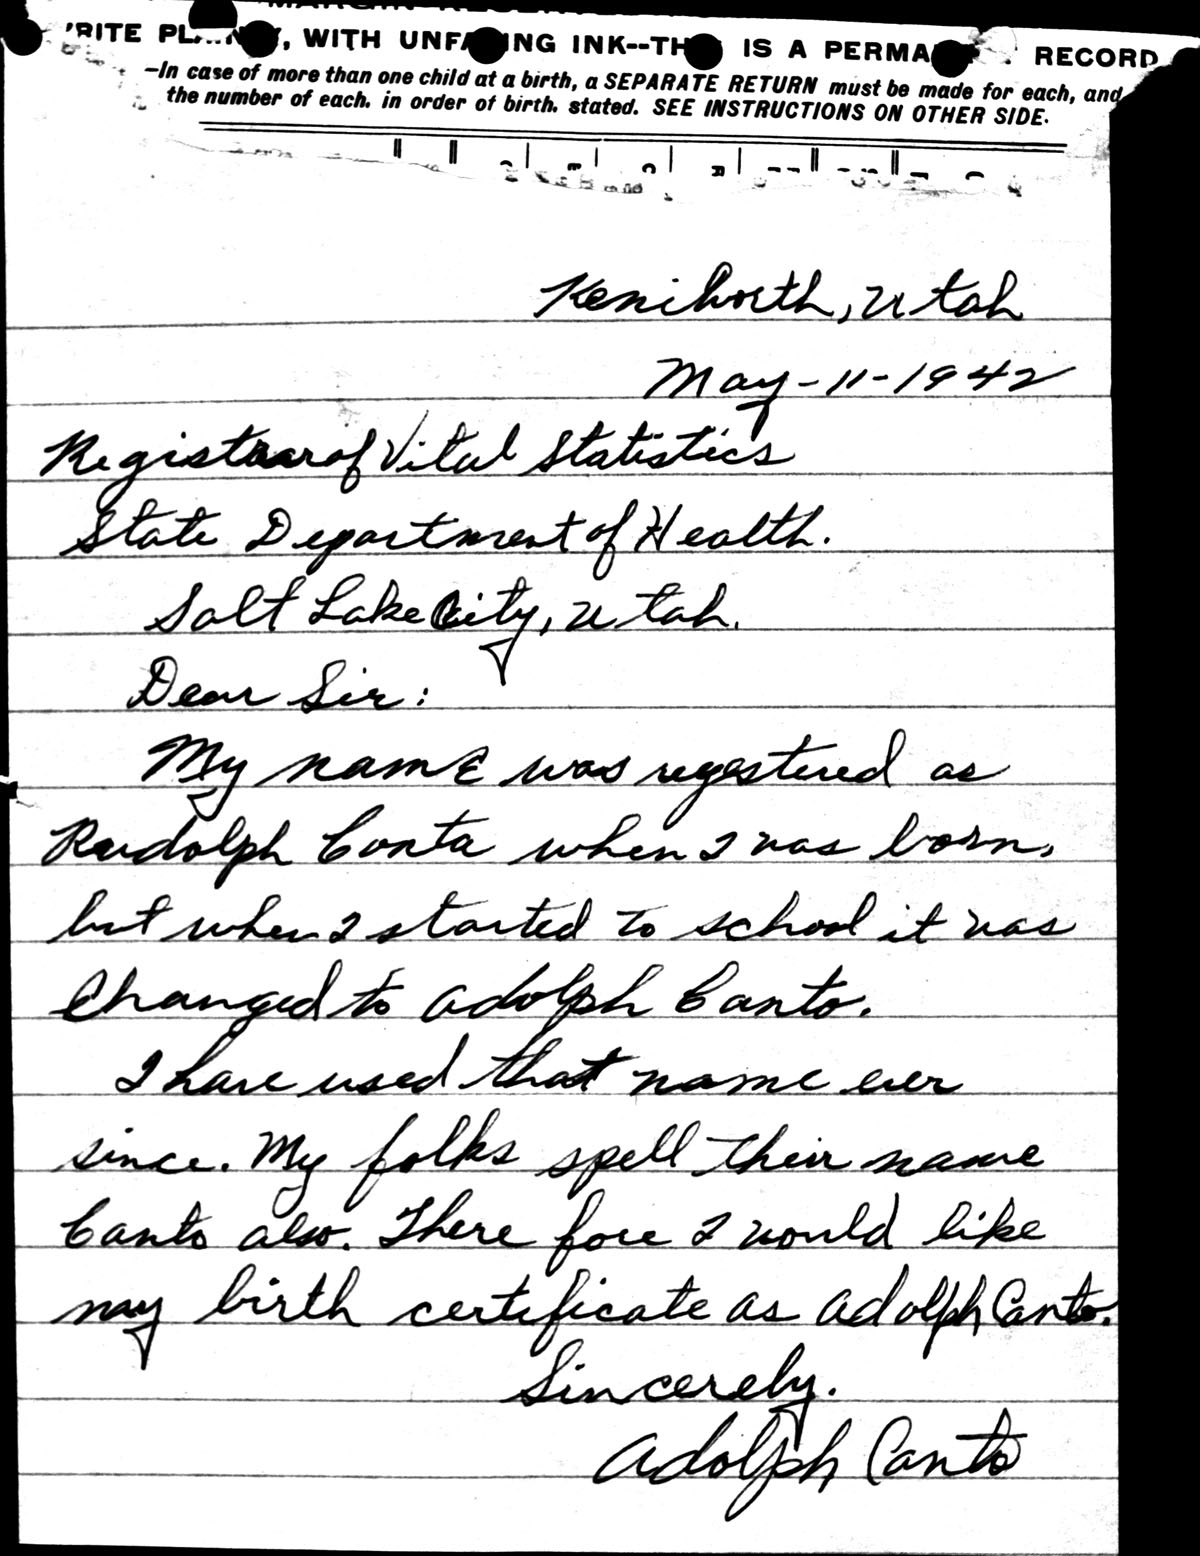 MARGIN
RITE PL, WITH UNFA NG INK--TH IS A PERMA RECORD
—In case of more than one child at a birth, a SEPARATE RETURN must be made for each, and
the number of each, in order of birth, stated. SEE INSTRUCTIONS ON OTHER SIDE.
Kenilworth, Utah
May-11-1942
Registrar of Vital Statistics
State Department of Health.
Salt Lake City, Utah.
Dear Sir:
My name was regestered as
Rudolph Conta when I was born,
but when I started to school it was
Changed to Adolph Canto.
I have used that name ever
since. My folks spell their name
Canto also. There fore I would like
my birth certificate as Adolph Canto.
Sincerely.
Adolph Canto